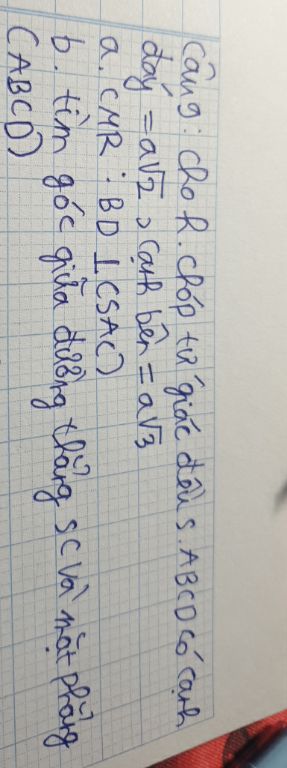 Câu 9: Cho h. chóp tứ giác đều S.ABCD có cạnh
đáy = a√2, cạnh bên = a√3
a. CMR: BD ⊥ (SAC)
b. tìm góc giữa đường thẳng SC và mặt phẳng
(ABCD)